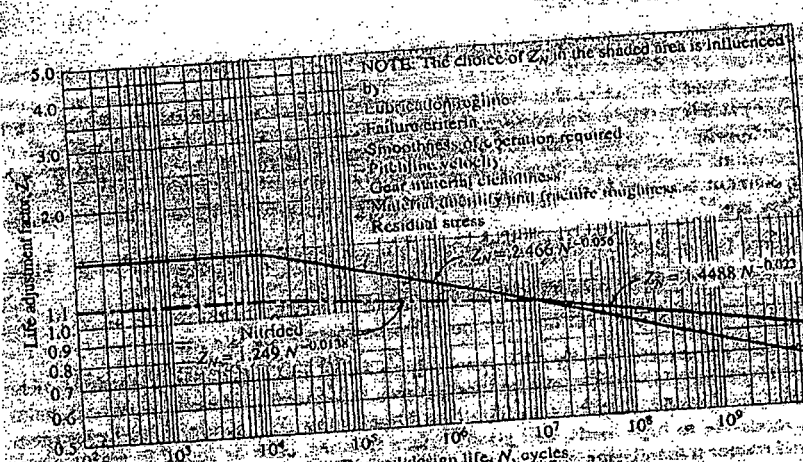 NOTE: The choice of Z_N in the shaded area is influenced
by
Lubrication regime
Failure criteria
Smoothness of operation required
Pitchline velocity
Gear material cleanliness
Material ductility and fracture toughness
Residual stress
5.0
4.0
3.0
2.0
1.1
1.0
0.9
0.8
0.7
0.6
0.5
Life adjustment factor, Z
Z_N = 2.466 N^-0.056
Z_N = 1.4488 N^-0.023
Nitrided
Z_N = 1.249 N^-0.0138
10²
10³
10⁴
10⁵
10⁶
10⁷
10⁸
10⁹
life, N, cycles